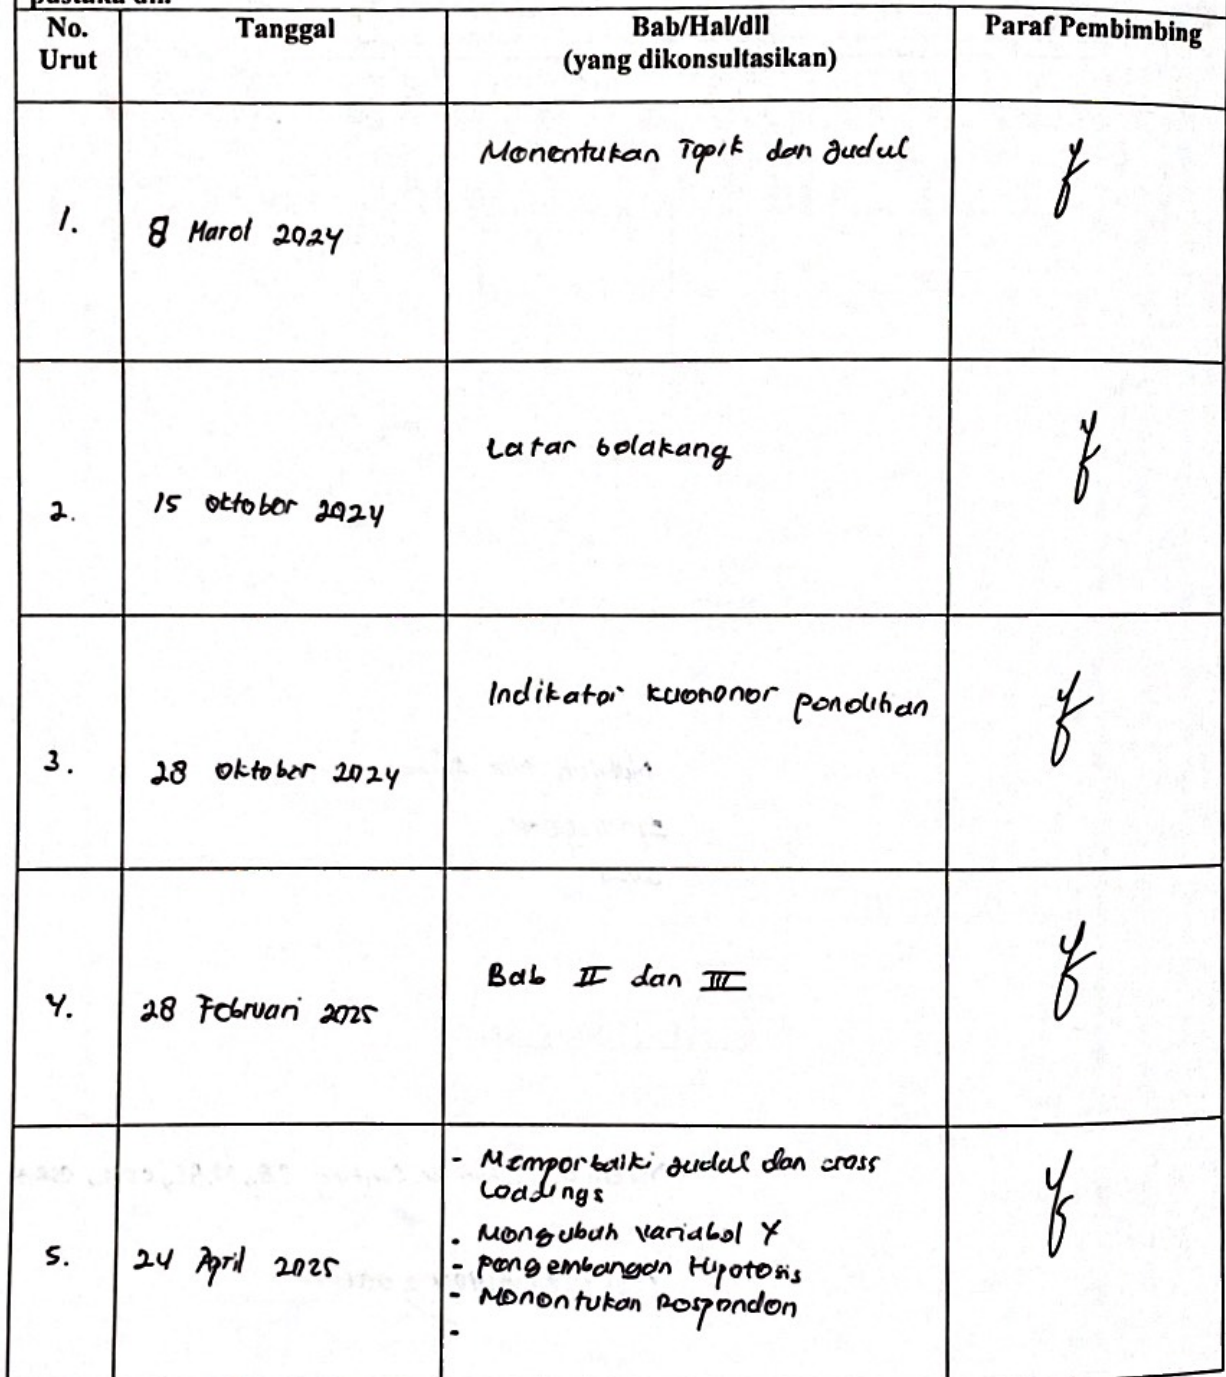 No. Urut
Tanggal
Bab/Hal/dll
(yang dikonsultasikan)
Paraf Pembimbing
1.
8 Maret 2024
Menentukan Topik dan Judul
2.
15 Oktober 2024
Latar belakang
3.
28 Oktober 2024
Indikator kuesioner penelitian
4.
28 Februari 2025
Bab II dan III
5.
24 April 2025
- Memperbaiki Judul dan cross
Loadings
- Mengubah variabel Y
- pengembangan Hipotesis
- Menentukan Responden
-